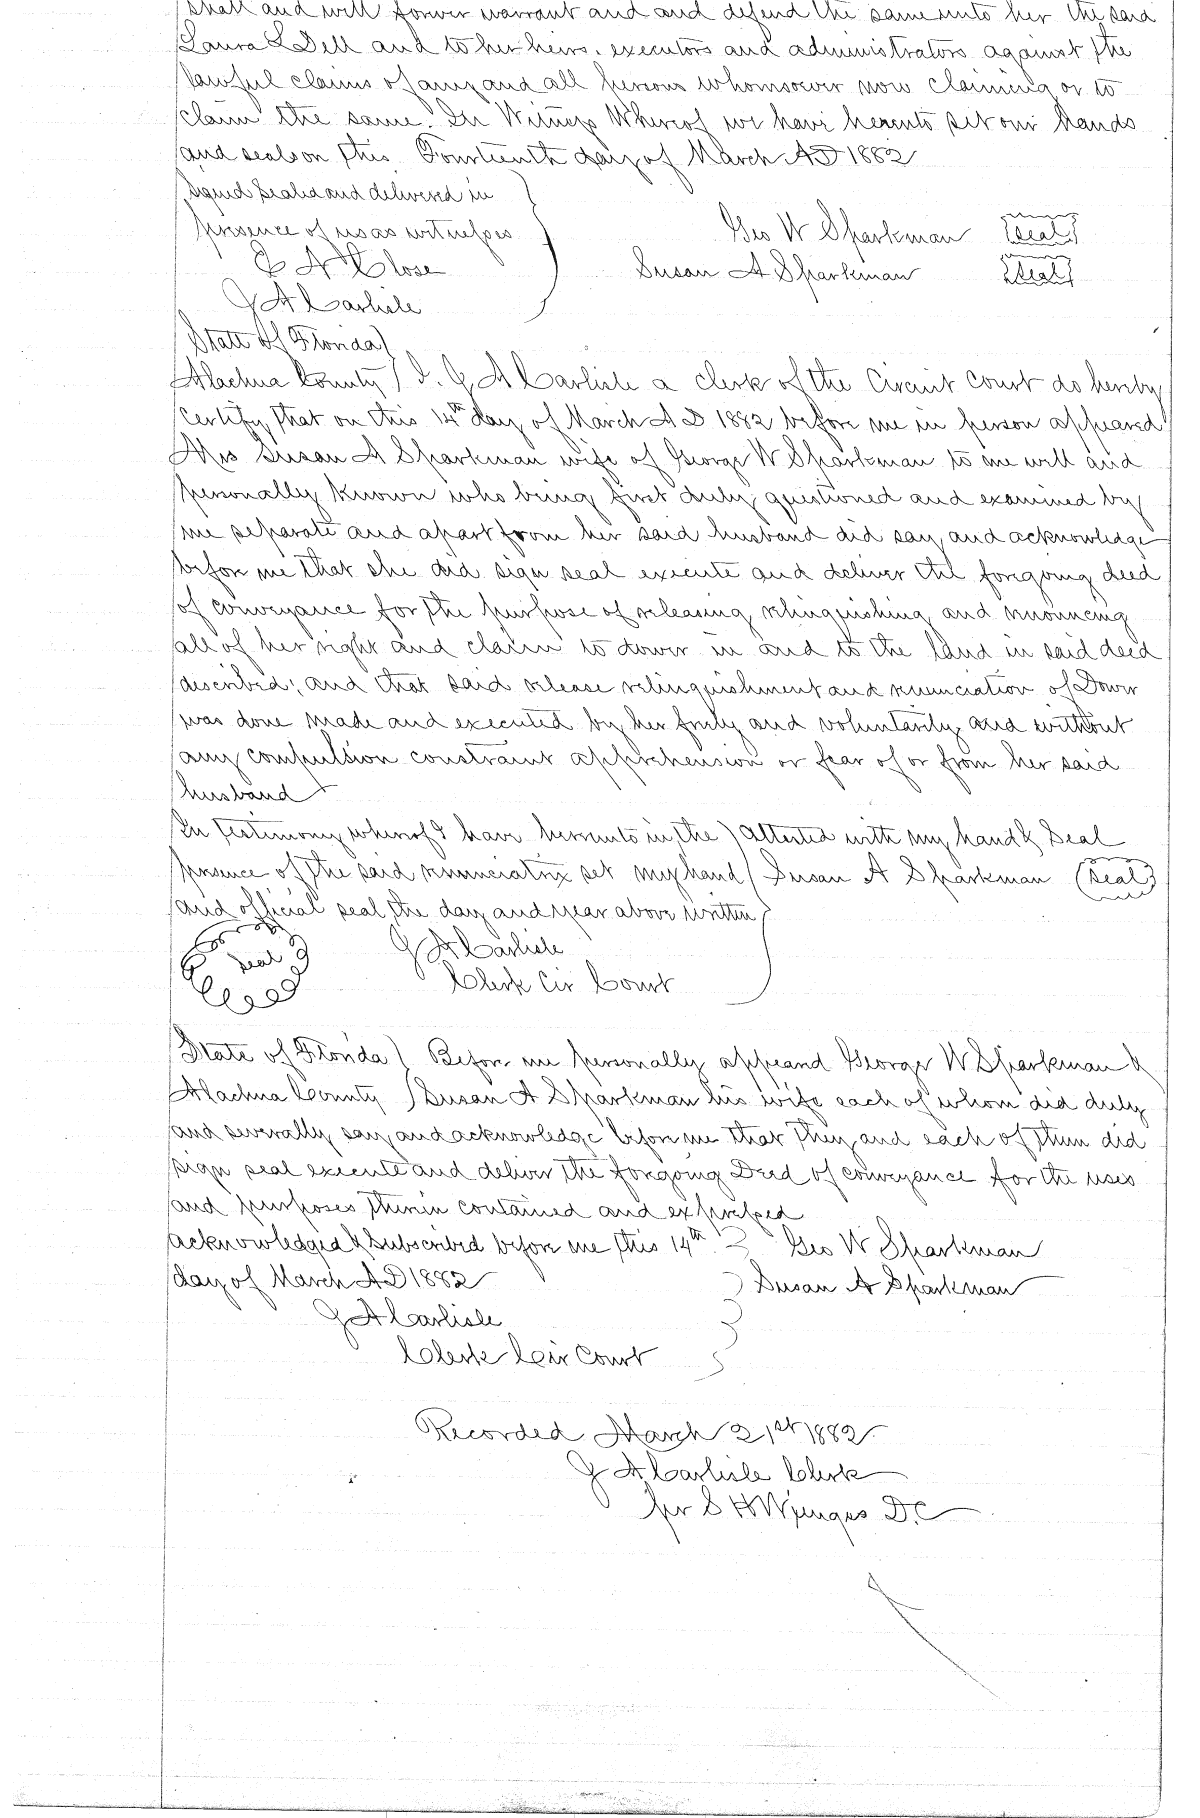 shall and will forever warrant and and defend the same unto her the said
Laura L Dell and to her heirs, executors and administrators against the
lawful claims of any and all persons whomsoever now claiming or to
claim the same. In Witness Whereof we have hereunto set our hands
and seals on this Fourteenth day of March AD 1882
Signed Sealed and delivered in
presence of us as witnesses
Geo W Sparkman Seal
A Close
Susan A Sparkman Seal
J A Carlisle
State of Florida
Alachua County I. J A Carlisle a clerk of the Circuit Court do hereby
certify that on this 14th day of March AD 1882 before me in person appeared
Mrs Susan A Sparkman wife of George W Sparkman to me well and
personally known who being first duly questioned and examined by
me separate and apart from her said husband did say and acknowledge
before me that she did sign seal execute and deliver the foregoing deed
of conveyance for the purpose of releasing relinquishing and renouncing
all of her right and claim to dower in and to the land in said deed
described; and that said release relinquishment and renunciation of Dower
was done made and executed by her freely and voluntarily and without
any compulsion constraint apprehension or fear of or from her said
husband
In testimony whereof I have hereunto in the Attested with my hand & Seal
presence of the said renunciatrix set my hand Susan A Sparkman Seal
and official seal the day and year above written
Seal J A Carlisle
Clerk Cir Court
State of Florida Before me personally appeared George W Sparkman &
Alachua County Susan A Sparkman his wife each of whom did duly
and severally say and acknowledge before me that they and each of them did
sign seal execute and deliver the foregoing Deed of conveyance for the uses
and purposes therein contained and expressed
acknowledged & Subscribed before me this 14th Geo W Sparkman
day of March AD 1882 Susan A Sparkman
J A Carlisle
Clerk Cir Court
Recorded March 21st 1882
J A Carlisle Clerk
per S H Wienges D.C